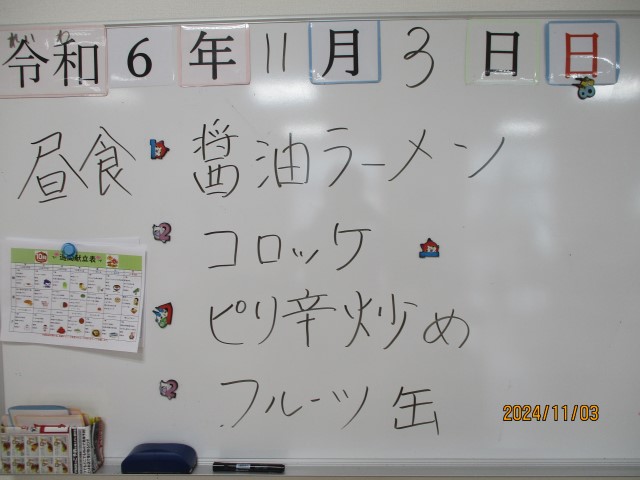 れいわ
令和6年11月3日日
昼食 醤油ラーメン
コロッケ
ピリ辛炒め
フルーツ缶
2024/11/03